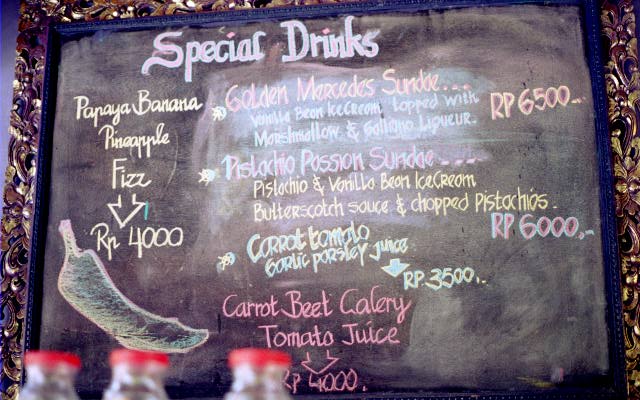 Special Drinks
Papaya Banana
Pineapple
Fizz
Rp 4000
Golden Mercedes Sundae....
Vanilla Bean IceCream topped with
Marshmallow & Galliano Liqueur.
RP 6500..
Pistachio Passion Sundae ....
Pistachio & Vanilla Bean IceCream
Butterscotch sauce & chopped Pistachios.
RP 6000,-
Carrot tomato
Garlic parsley juice
RP. 3500,-
Carrot Beet Calery
Tomato Juice
Rp 4000.